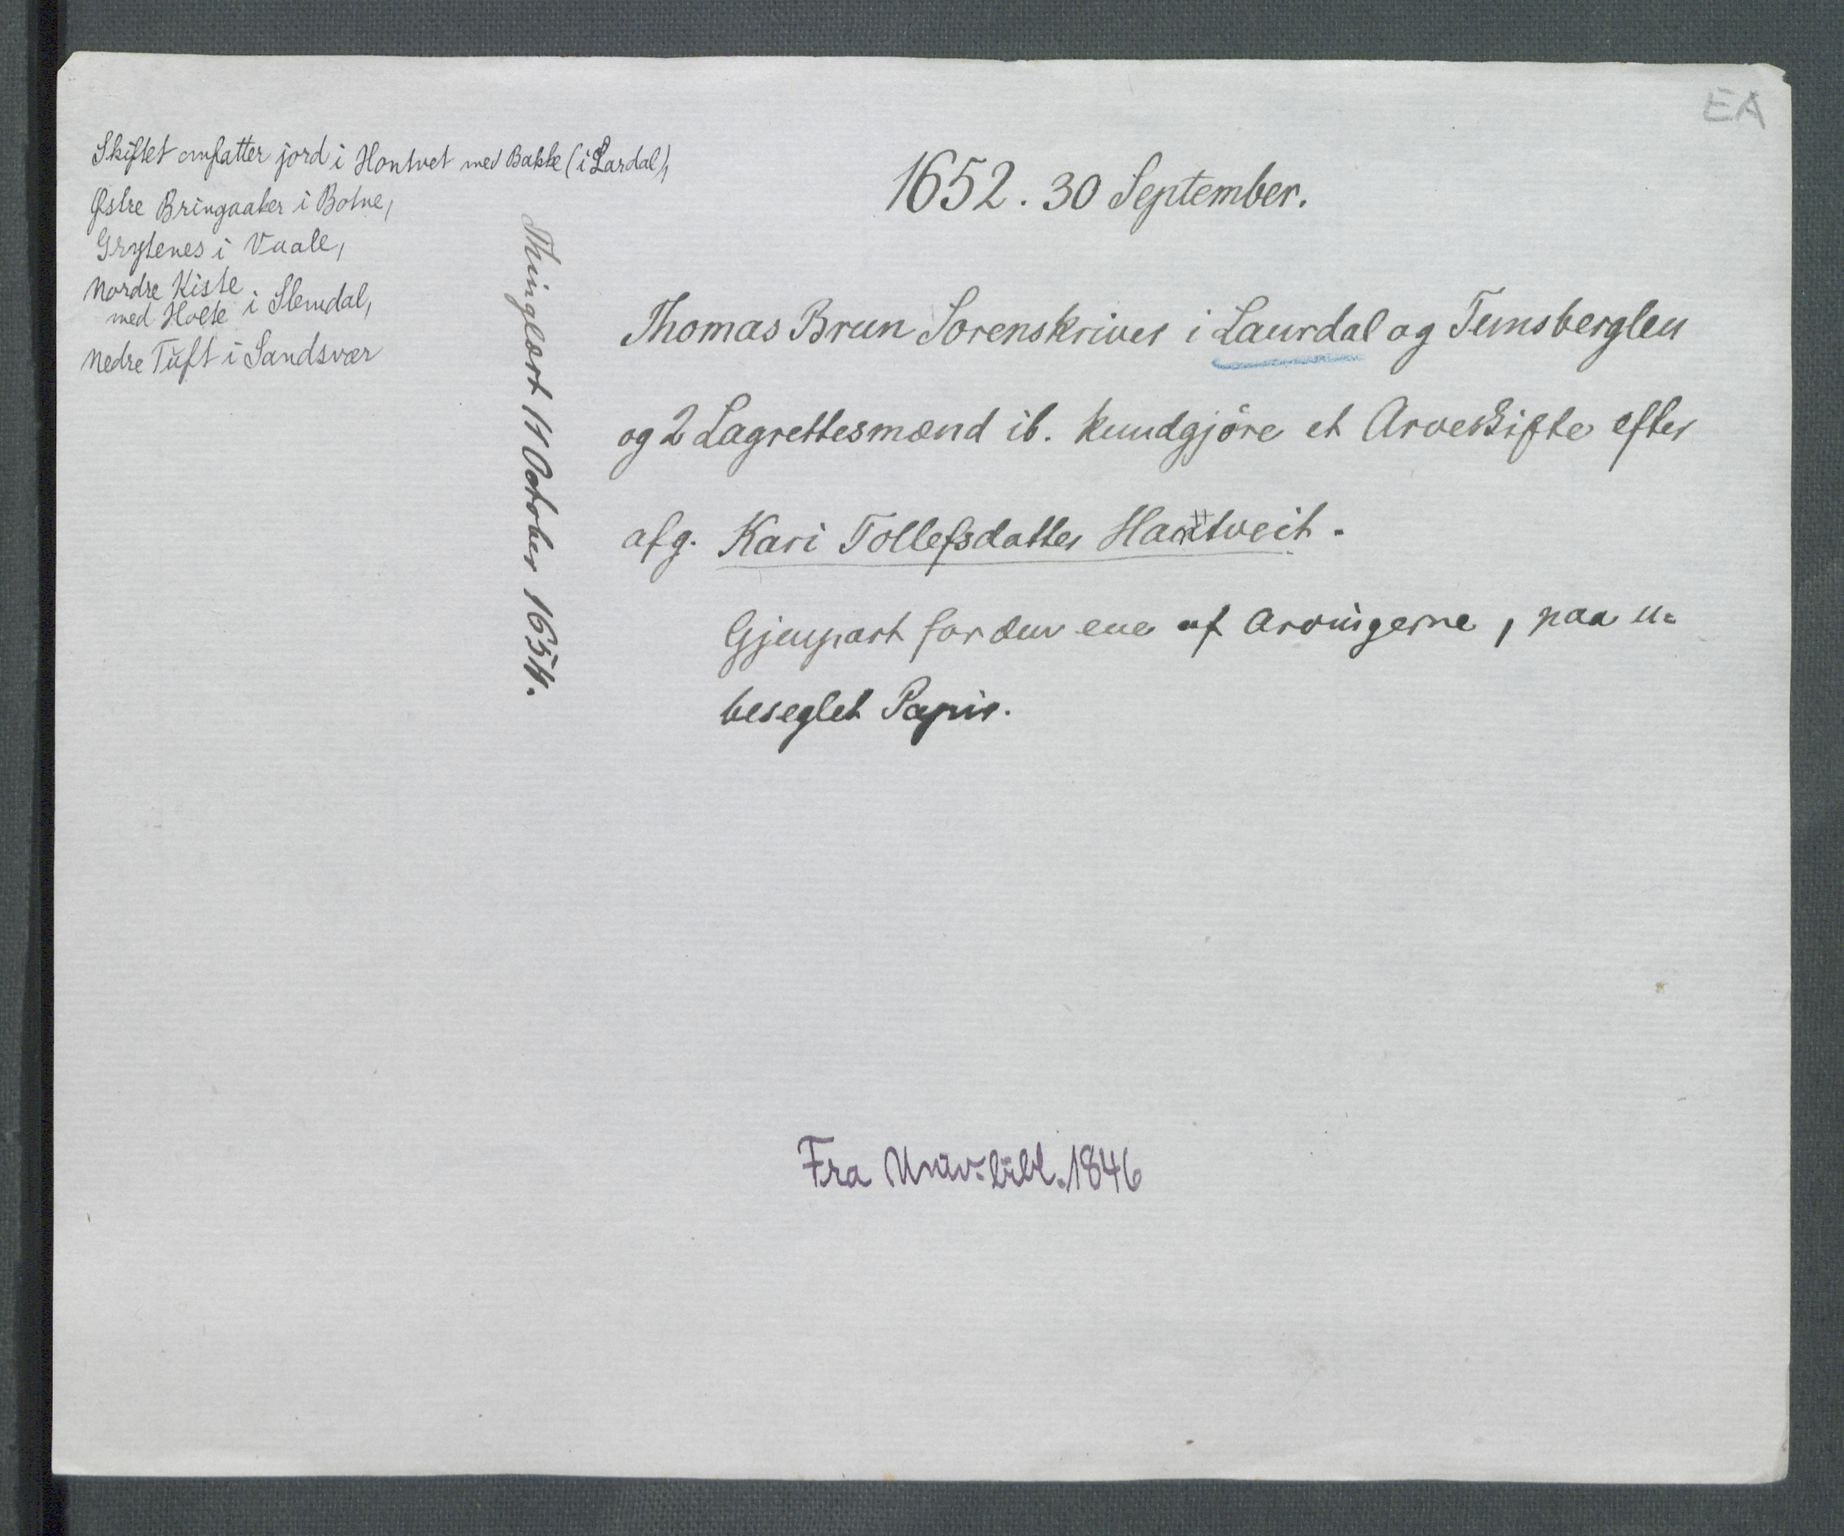 EA
Skiftet omfatter jord i Hontvet med Bakke (i Lardal),
Østre Bringaaker i Botne,
Grytenes i Vaale,
Nordre Kiste
med Holte i Slemdal,
Nedre Tuft i Sandsvær
Thinglæst 11 October 1654.
1652. 30 September.
Thomas Brun Sorenskriver i Laurdal og Tunsberglen
og 2 Lagrettesmænd ib. kundgjöre et Arveskifte efter
afg. Kari Tollefsdatter Hantveit.
Gjenpart for den ene af Arvingerne, paa u=
beseglet Papir.
Fra Univ.bibl. 1846